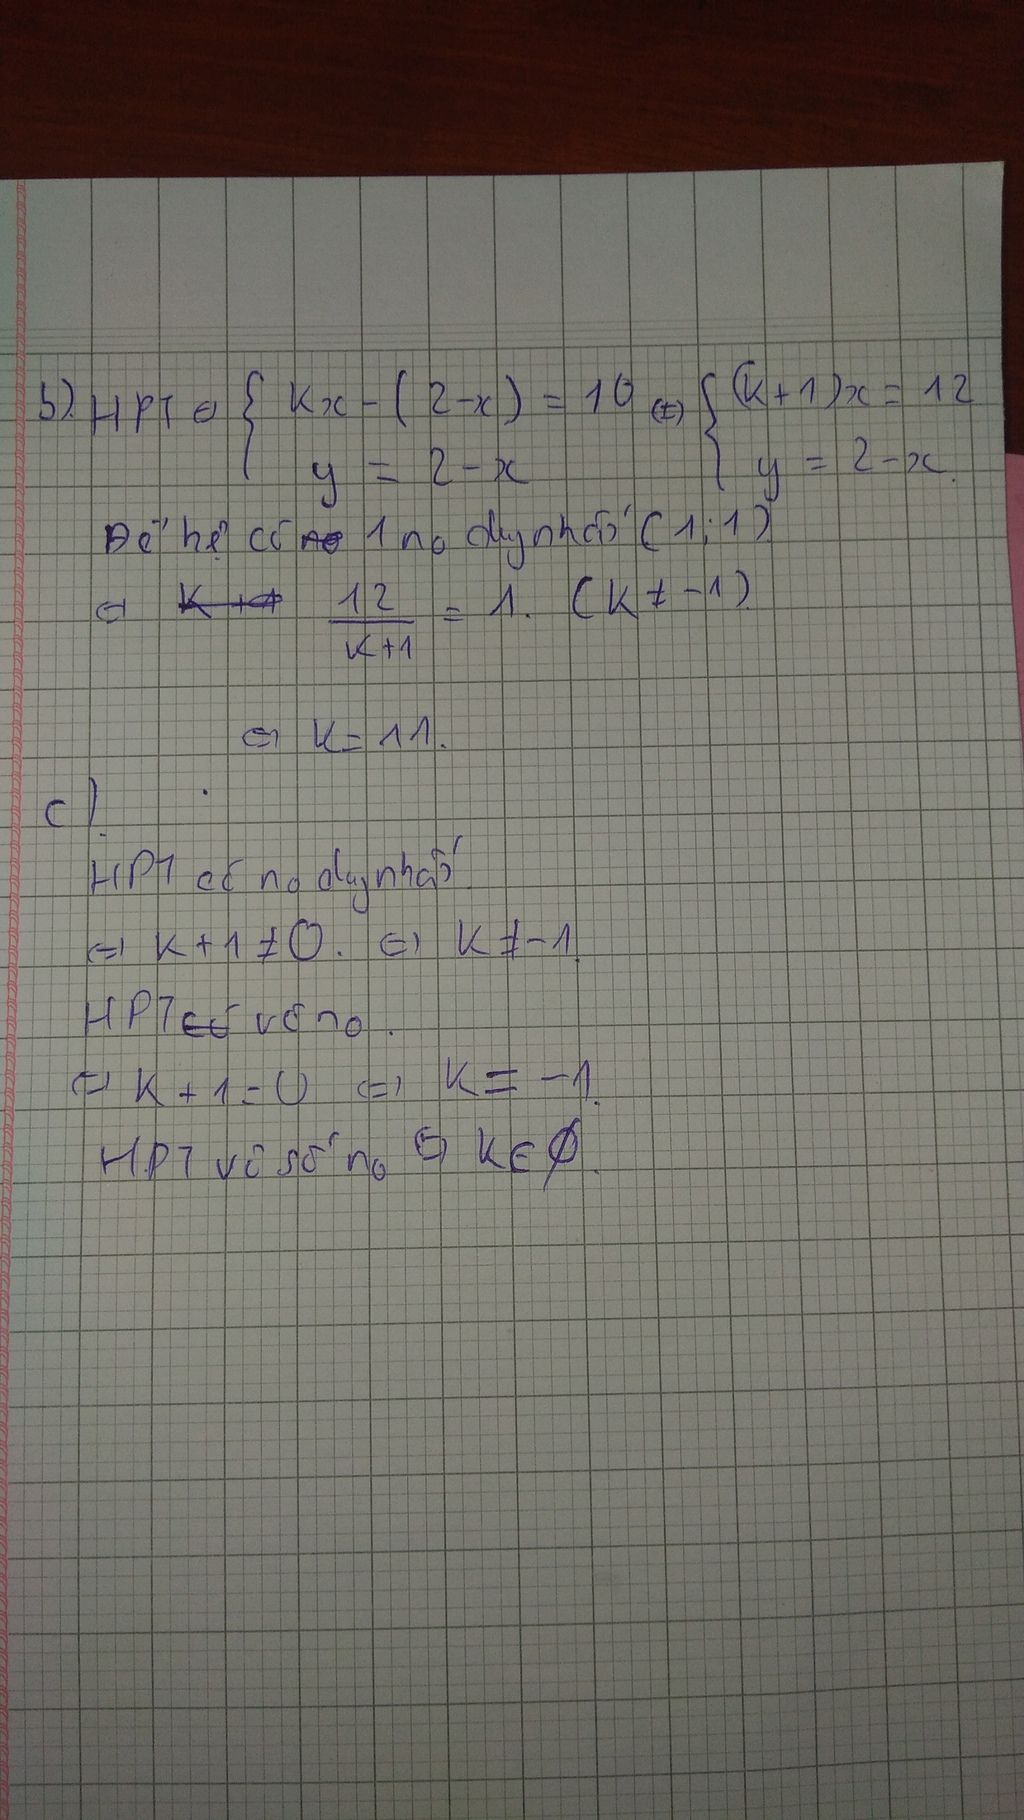 b). HPT ⇔ { kx - (2-x) = 10 ⇔ { (k+1)x = 12
y = 2-x y = 2-x.
Để hệ có 1 no duy nhất (1;1)
⇔ 12/(k+1) = 1. (k ≠ -1)
⇔ k = 11.
c).
HPT có no duy nhất
⇔ k+1 ≠ 0. ⇔ k ≠ -1.
HPT vô no.
⇔ k+1 = 0 ⇔ k = -1.
HPT vô số no ⇔ k ∈ ∅.